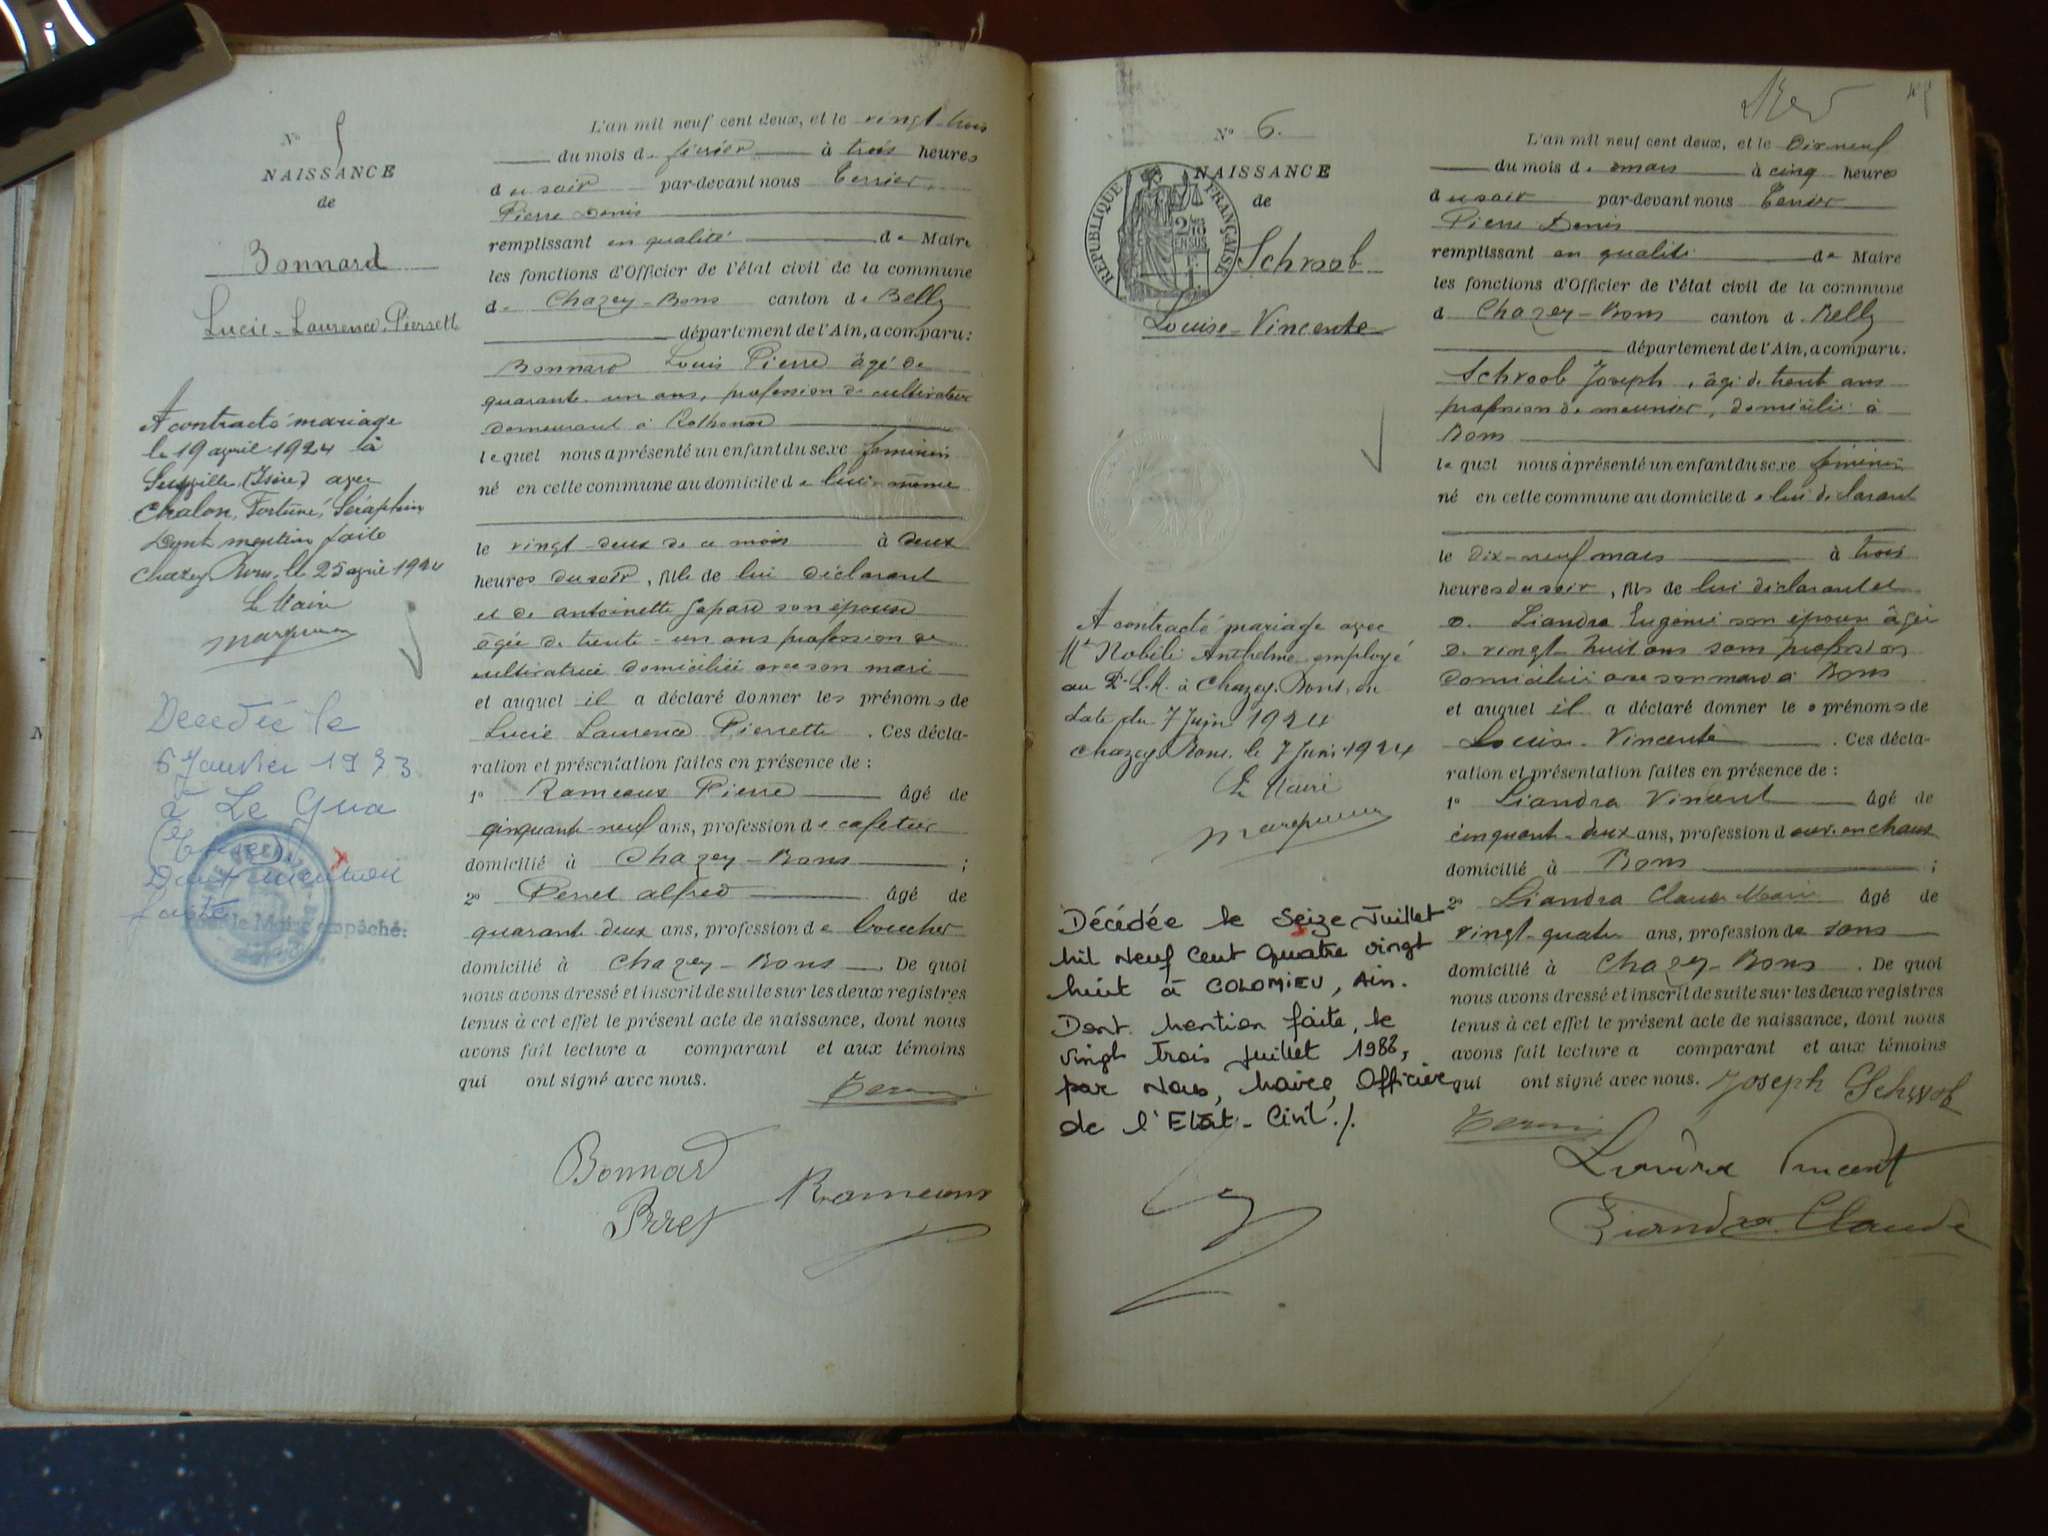 N° 5
NAISSANCE
de
Bonnard
Lucie-Laurence-Pierrette
A contracté mariage
le 19 avril 1924 à
(Isère) avec
Chalon, Fortuné, Séraphin
Dont mention faite
Chazey Bons, le 25 avril 1924
Le Maire
Décédée le
6 Janvier 19
à Le Gua
Dont mention
faite
Pour le Maire empêché:
L'an mil neuf cent deux, et le vingt-trois
du mois de février à trois heures
du soir par-devant nous Terrier
Pierre Denis
remplissant en qualité de Maire
les fonctions d'Officier de l'état civil de la commune
de Chazey-Bons canton de Belley
département de l'Ain, a comparu:
Bonnard Louis Pierre âgé de
quarante-un ans, profession de cultivateur
demeurant à Rothonod
lequel nous a présenté un enfant du sexe féminin
né en cette commune au domicile de lui-même
le vingt-deux de ce mois à deux
heures du soir, fille de lui déclarant
et de antoinette son épouse
âgée de trente-un ans profession de
cultivatrice domiciliée avec son mari
et auquel il a déclaré donner les prénoms de
Lucie Laurence Pierrette. Ces décla-
ration et présentation faites en présence de:
1° Rameaux Pierre âgé de
cinquante-neuf ans, profession de cafetier
domicilié à Chazey-Bons;
2° Perret alfred âgé de
quarante deux ans, profession de boucher
domicilié à Chazey-Bons. De quoi
nous avons dressé et inscrit de suite sur les deux registres
tenus à cet effet le présent acte de naissance, dont nous
avons fait lecture a comparant et aux témoins
qui ont signé avec nous.
Bonnard
Rameaux
Perret
N° 6.
NAISSANCE
de
RÉPUBLIQUE FRANÇAISE
Schwob
Louise-Vincente
A contracté mariage avec
Mr Nobili Anthelme employé
au P.L.M. à Chazey-Bons, en
date du 7 Juin 1924
Chazey Bons, le 7 Juin 1924
Le Maire
Décédée le Seize Juillet
Mil Neuf Cent Quatre vingt
huit à COLOMIEU, Ain.
Dont mention faite, le
vingt Trois Juillet 1988,
par Nous, Maire, Officier
de l'Etat-Civil./.
L'an mil neuf cent deux, et le Dix neuf
du mois de mars à cinq heures
du soir par-devant nous Terrier
Pierre Denis
remplissant en qualité de Maire
les fonctions d'Officier de l'état civil de la commune
d Chazey-Bons canton d Belley
département de l'Ain, a comparu.
Schwob Joseph, âgé de trente ans
profession de meunier, domicilié à
Bons
lequel nous a présenté un enfant du sexe féminin
né en cette commune au domicile de lui déclarant
le dix-neuf mars à trois
heures du soir, fils de lui déclarant et
de Liandra Eugénie son épouse âgée
de vingt huit ans sans profession
domiciliée avec son mari à Bons
et auquel il a déclaré donner le s prénoms de
Louise-Vincente. Ces décla-
ration et présentation faites en présence de:
1° Liandra Vincent âgé de
cinquante-deux ans, profession d ouv. en chaux
domicilié à Bons;
2° Liandra Claude Marie âgé de
vingt-quatre ans, profession de sans
domicilié à Chazey-Bons. De quoi
nous avons dressé et inscrit de suite sur les deux registres
tenus à cet effet le présent acte de naissance, dont nous
avons fait lecture a comparant et aux témoins
qui ont signé avec nous. Joseph Schwob
Liandra Vincent
Liandra Claude